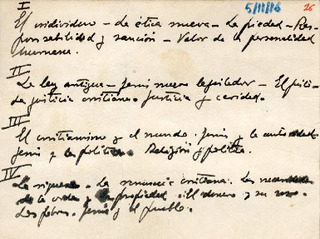 I 5/11/16 26
El individuo – La ética nueva – La piedad – Res-
ponsabilidad y sanción – Valor de la personalidad
humana.
II
La ley antigua – Jesús nuevo legislador – El
La justicia cristiana. Justicia y caridad.
III
El cristianismo y el mundo. Jesús y la autoridad.
Jesús y la política. Religión y política.
IV
La riqueza. La renuncia cristiana. Las
de la vida y la propiedad. El dinero y su uso.
Los pobres. Jesús y el pueblo.